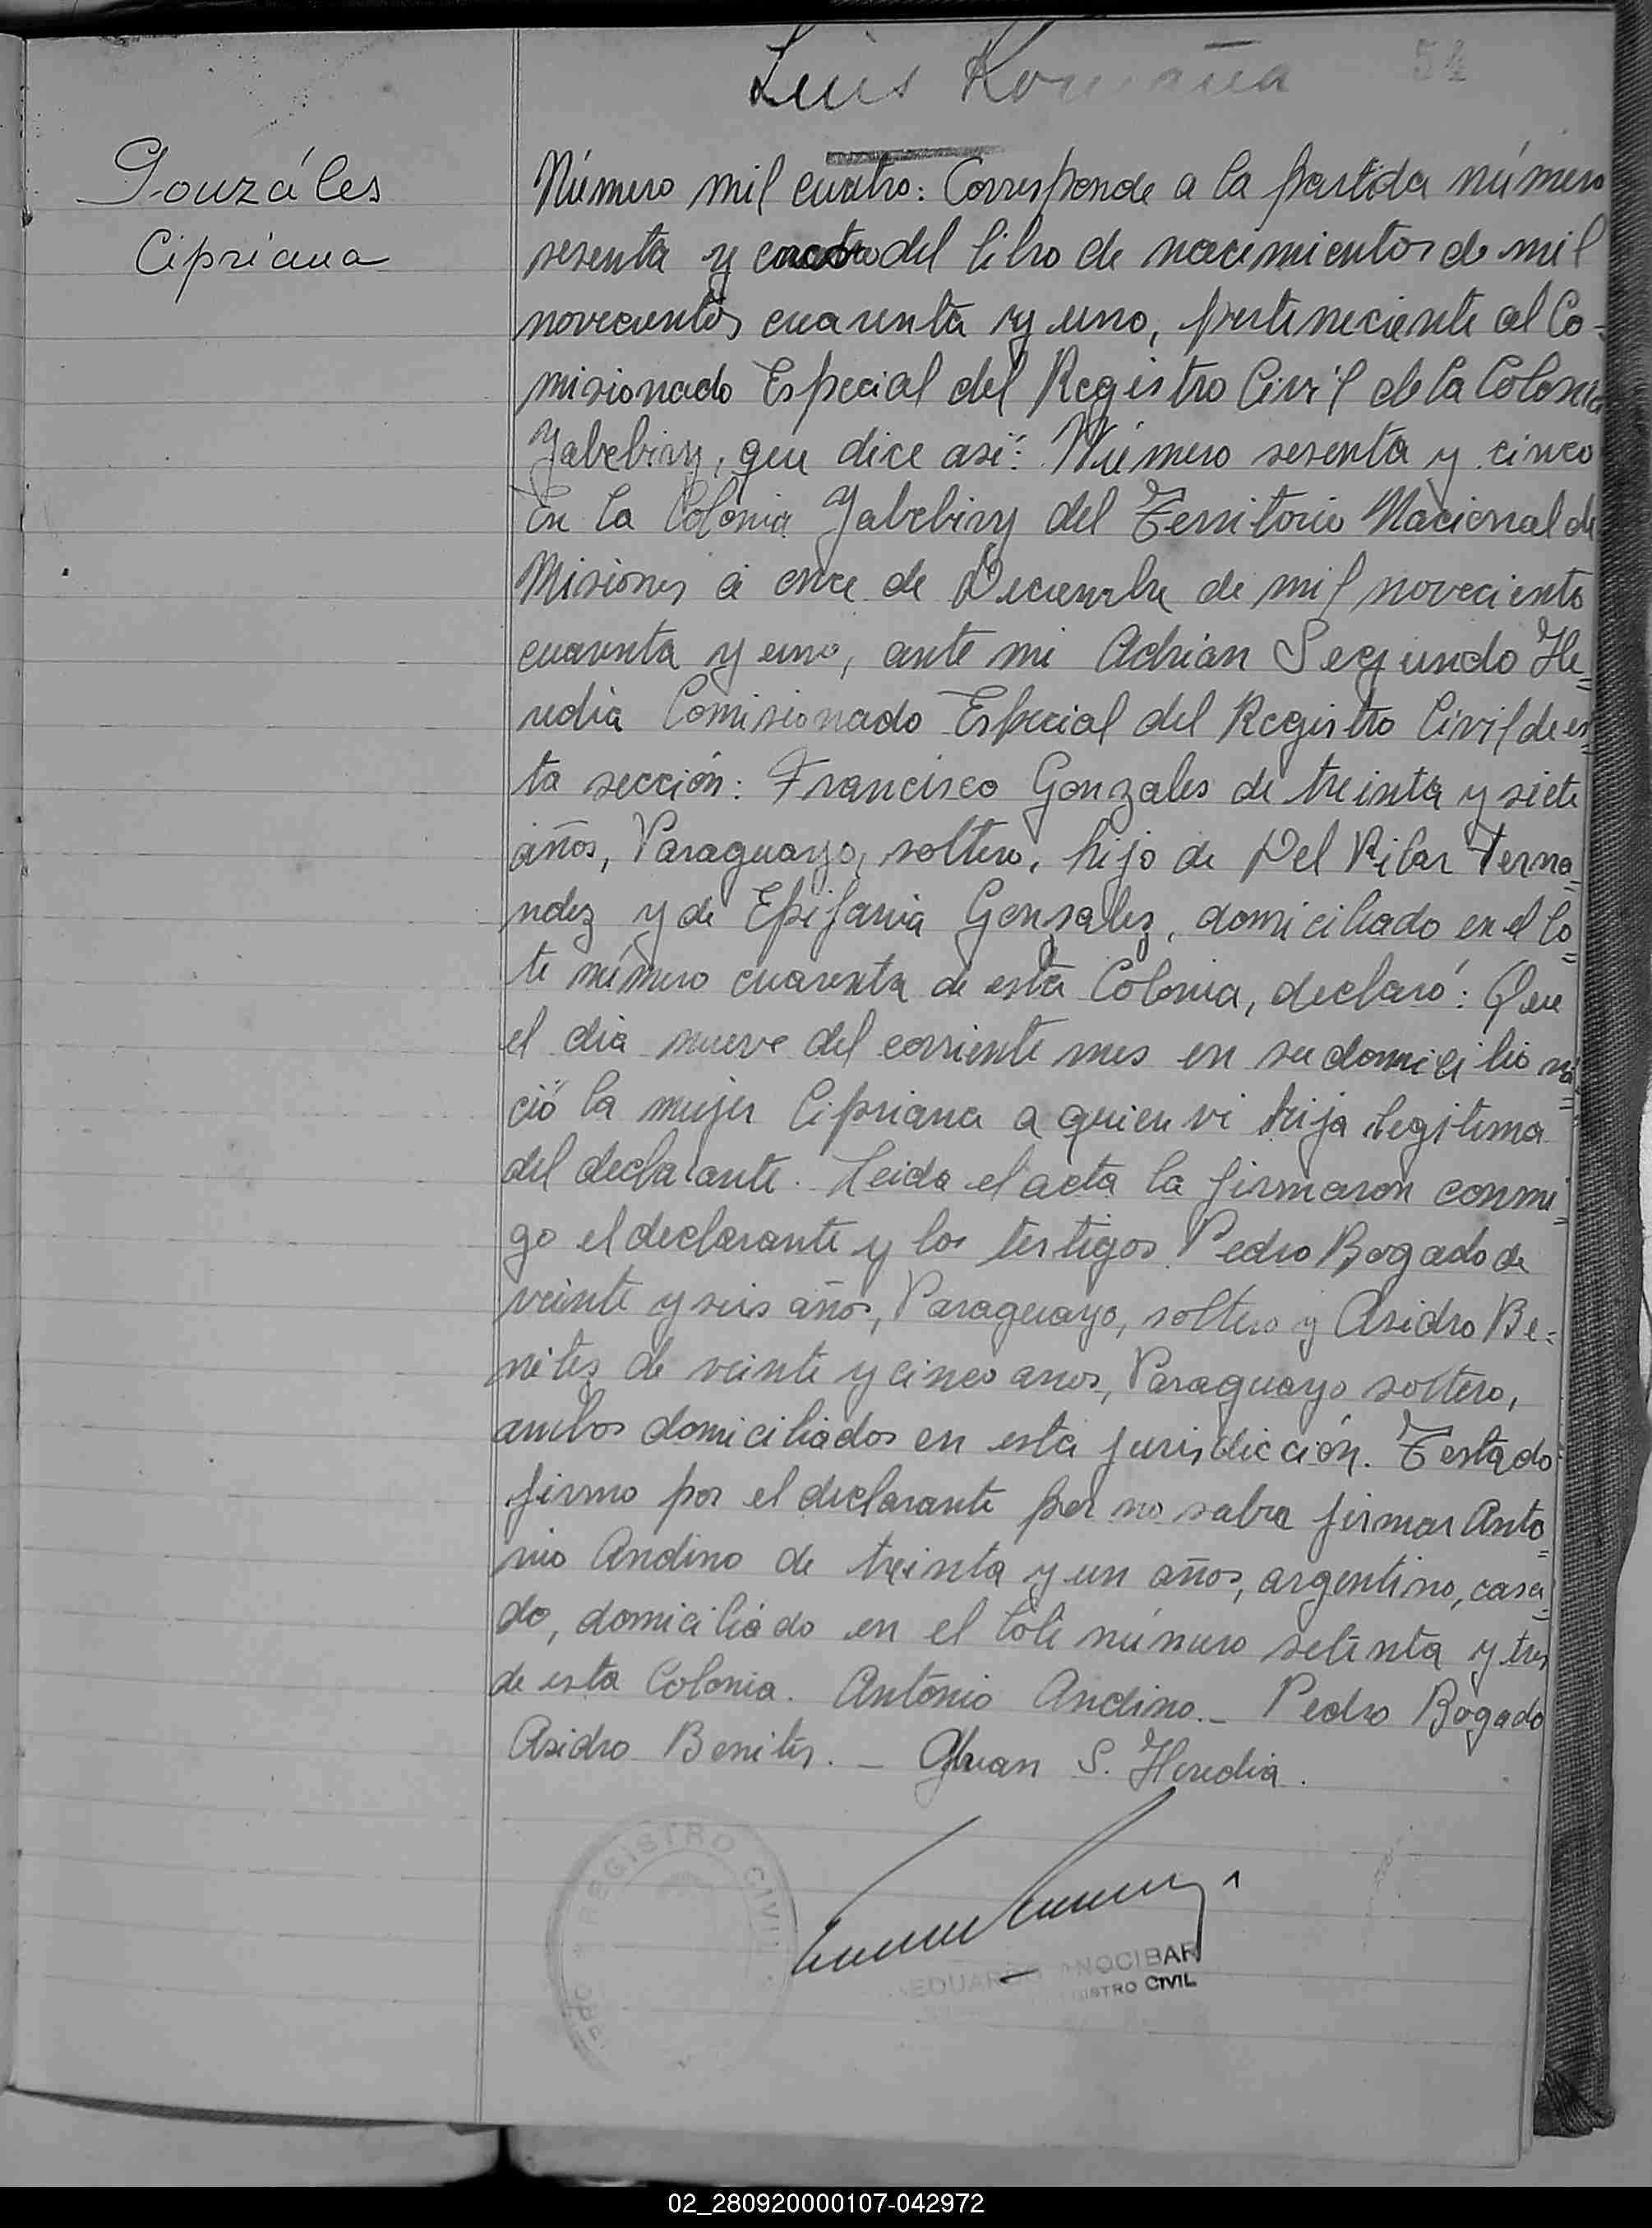 Luis Romaña
54
Gonzáles
Cipriana
Número mil cuatro: Corresponde a la partida número
sesenta y cuatro del libro de nacimientos de mil
novecientos cuarenta y uno, perteneciente al Co-
misionado Especial del Registro Civil de la Colonia
Yabebiry, que dice así: Número sesenta y cinco
En la Colonia Yabebiry del Territorio Nacional de
Misiones a once de Diciembre de mil noveciento
cuarenta y uno, ante mi Adrian Segundo He=
redia Comisionado Especial del Registro Civil de es=
ta sección: Francisco Gonzales de treinta y siete
años, Paraguayo, soltero, hijo de Del Pilar Ferna=
ndez y de Epifania Gonzalez, domiciliado en el lo=
te número cuarenta de esta Colonia, declaró: Que
el dia nueve del corriente mes en su domicilio na=
ció la mujer Cipriana a quien vi hija legitima
del declarante. Leida el acta la firmaron conmi=
go el declarante y los testigos Pedro Bogado de
veinte y seis años, Paraguayo, soltero y Asidro Be=
nites de veinte y cinco anos, Paraguayo soltero,
ambos domiciliados en esta jurisdicción. Testado
firmo por el declarante por no sabre firmar Anto=
nio Andino de treinta y un años, argentino, casa=
do, domiciliado en el lote número setenta y tres
de esta Colonia. Antonio Andino.- Pedro Bogado
Asidro Benites. - S. Heredia.
REGISTRO CIVIL
EDUARDO ANOCIBAR
REGISTRO CIVIL
02_280920000107-042972